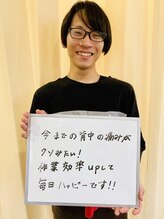 今までの背中の痛みが
ウソみたい!
作業効率upして
毎日ハッピーです!!